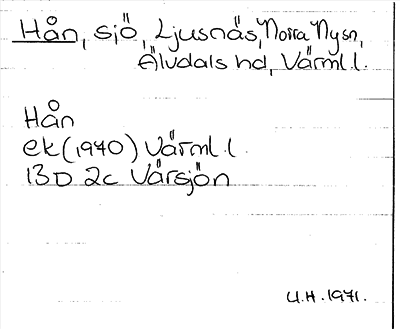 Hån, sjö, Ljusnäs, Norra Nysn,
Älvdals hd, Värml.l.
Hån
ek (1970) Värml.l
13D 2c Vårsjön
U.H. 1971.